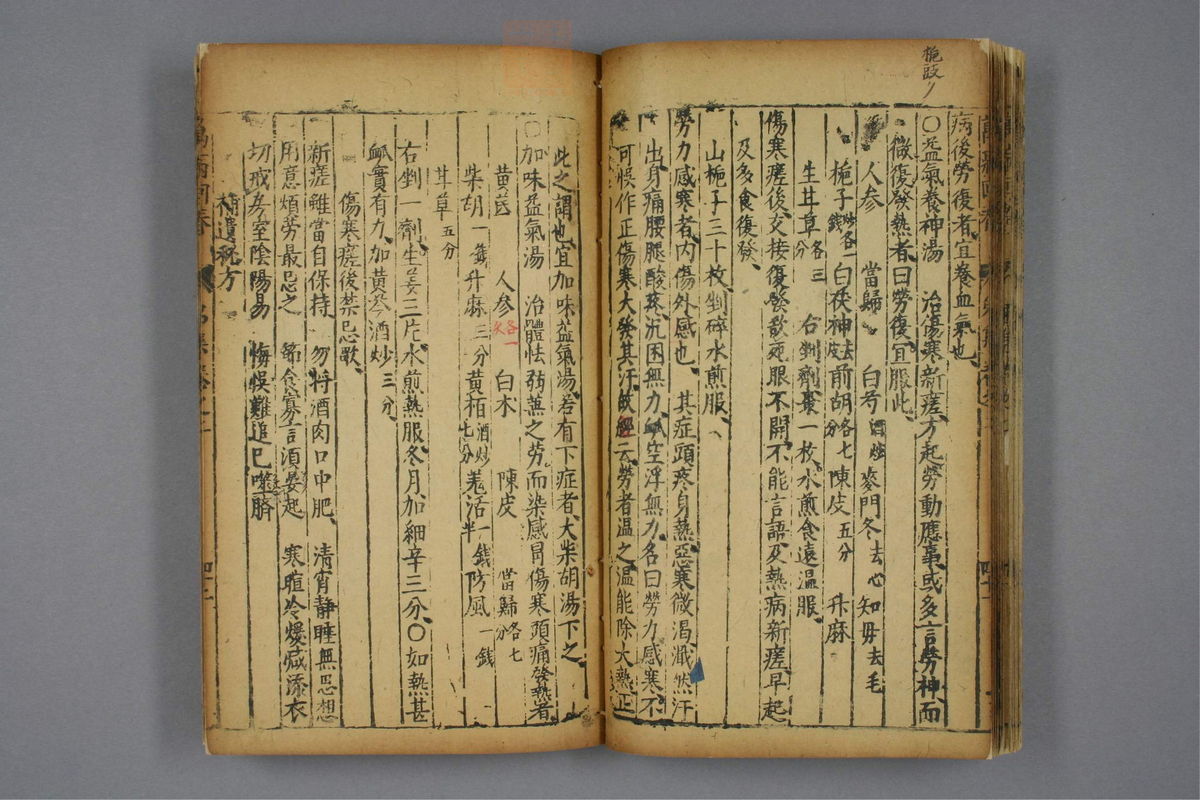 梔豉ノ
病後勞復者宜養血氣也
○益氣養神湯 治傷寒新瘥方起勞動應事或多言勞神而
微復發熱者曰勞復宜服此
人参 當歸 白芍酒炒 麥門冬去心 知毋去毛
梔子炒各一錢 白茯神去皮 前胡各七分 陳皮五分 升麻
生甘草各三分 右剉劑棗一枚水煎食遠温服
傷寒瘥後交接復發欲死眼不開不能言語及熱病新瘥早起
及多食復發
山梔子三十枚剉碎水煎服
勞力感寒者内傷外感也 其症頭疼身熱惡寒微渴濈然汗
出身痛腰腿酸疼沉困無力脉空浮無力名曰勞力感寒不
可悞作正傷寒大發其汗故經云勞者温之温能除大熱正
此之謂也宜加味益氣湯若有下症者大柴胡湯下之
○加味益氣湯 治體怯弱蒸之勞而染感冒傷寒頭痛發熱者
黄芪 人参各一 白术 陳皮 當歸各七分
柴胡一錢 升麻三分 黄栢酒炒七分 羗活一錢半 防風一錢
甘草五分
右剉一劑生姜三片水煎熱服冬月加細辛三分○如熱甚
脉實有力加黄芩酒炒三分
傷寒瘥後禁忌歌
新瘥雖當自保持 勿將酒肉口中肥 清宵靜睡無思想
用意煩勞最忌之 節食寡言須晏起 寒暄冷煖减添衣
切戒房室陰陽易 悔悞難追已噬臍
補遺秘方
萬病回春
四十二